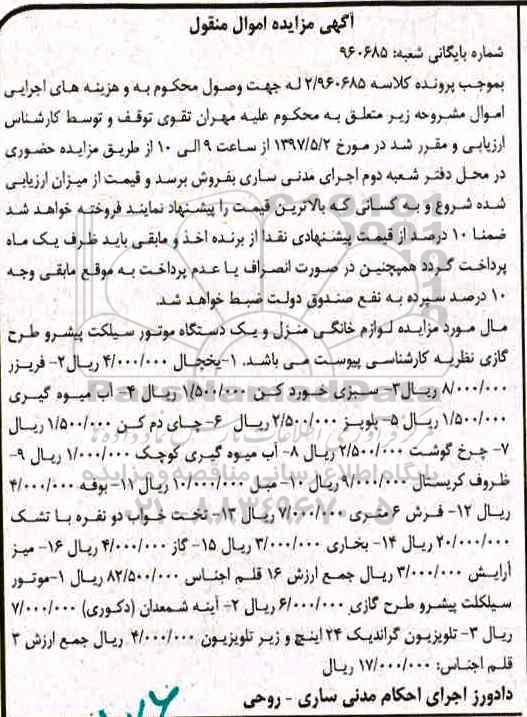 آگهی مزایده اموال منقول
شماره بایگانی شعبه: ۹۶۰۶۸۵
بموجب پرونده کلاسه ۲/۹۶۰۶۸۵ له جهت وصول محکوم به و هزینه های اجرایی
اموال مشروحه زیر متعلق به محکوم علیه مهران تقوی توقف و توسط کارشناس
ارزیابی و مقرر شد در مورخ ۱۳۹۷/۵/۲ از ساعت ۹ الی ۱۰ از طریق مزایده حضوری
در محل دفتر شعبه دوم اجرای مدنی ساری بفروش برسد و قیمت از میزان ارزیابی
شده شروع و به کسانی که بالاترین قیمت را پیشنهاد نمایند فروخته خواهد شد
ضمنا ۱۰ درصد از قیمت پیشنهادی نقدا از برنده اخذ و مابقی باید ظرف یک ماه
پرداخت گردد همچنین در صورت انصراف یا عدم پرداخت به موقع مابقی وجه
۱۰ درصد سپرده به نفع صندوق دولت ضبط خواهد شد.
مال مورد مزایده لوازم خانگی منزل و یک دستگاه موتور سیلکت پیشرو طرح
گازی نظریه کارشناسی پیوست می باشد. ۱-یخچال ۴/۰۰۰/۰۰۰ ریال ۲- فریزر
۸/۰۰۰/۰۰۰ ریال ۳- سبزی خورد کن ۱/۵۰۰/۰۰۰ ریال ۴- آب میوه گیری
۱/۵۰۰/۰۰۰ ریال ۵- پلوپز ۲/۵۰۰/۰۰۰ ریال ۶- چای دم کن ۱/۵۰۰/۰۰۰ ریال
۷- چرخ گوشت ۲/۵۰۰/۰۰۰ ریال ۸- آب میوه گیری کوچک ۱/۰۰۰/۰۰۰ ریال ۹-
ظروف کریستال ۹/۰۰۰/۰۰۰ ریال ۱۰- مبل ۱۰/۰۰۰/۰۰۰ ریال ۱۱- بوفه ۴/۰۰۰/۰۰۰
ریال ۱۲- فرش ۶ متری ۷/۰۰۰/۰۰۰ ریال ۱۳- تخت خواب دو نفره با تشک
۲۰/۰۰۰/۰۰۰ ریال ۱۴- بخاری ۳/۰۰۰/۰۰۰ ریال ۱۵- گاز ۴/۰۰۰/۰۰۰ ریال ۱۶- میز
آرایش ۳/۰۰۰/۰۰۰ ریال جمع ارزش ۱۶ قلم اجناس ۸۲/۵۰۰/۰۰۰ ریال ۱-موتور
سیلکلت پیشرو طرح گازی ۶/۰۰۰/۰۰۰ ریال ۲- آینه شمعدان (دکوری) ۷/۰۰۰/۰۰۰
ریال ۳- تلویزیون گراندیک ۲۴ اینچ و زیر تلویزیون ۴/۰۰۰/۰۰۰ ریال جمع ارزش ۳
قلم اجناس: ۱۷/۰۰۰/۰۰۰ ریال
دادورز اجرای احکام مدنی ساری - روحی
ParsNamadData
پایگاه اطلاع رسانی مناقصه و مزایده
۰۲۱-۸۸۳۴۹۶۷۰-۵